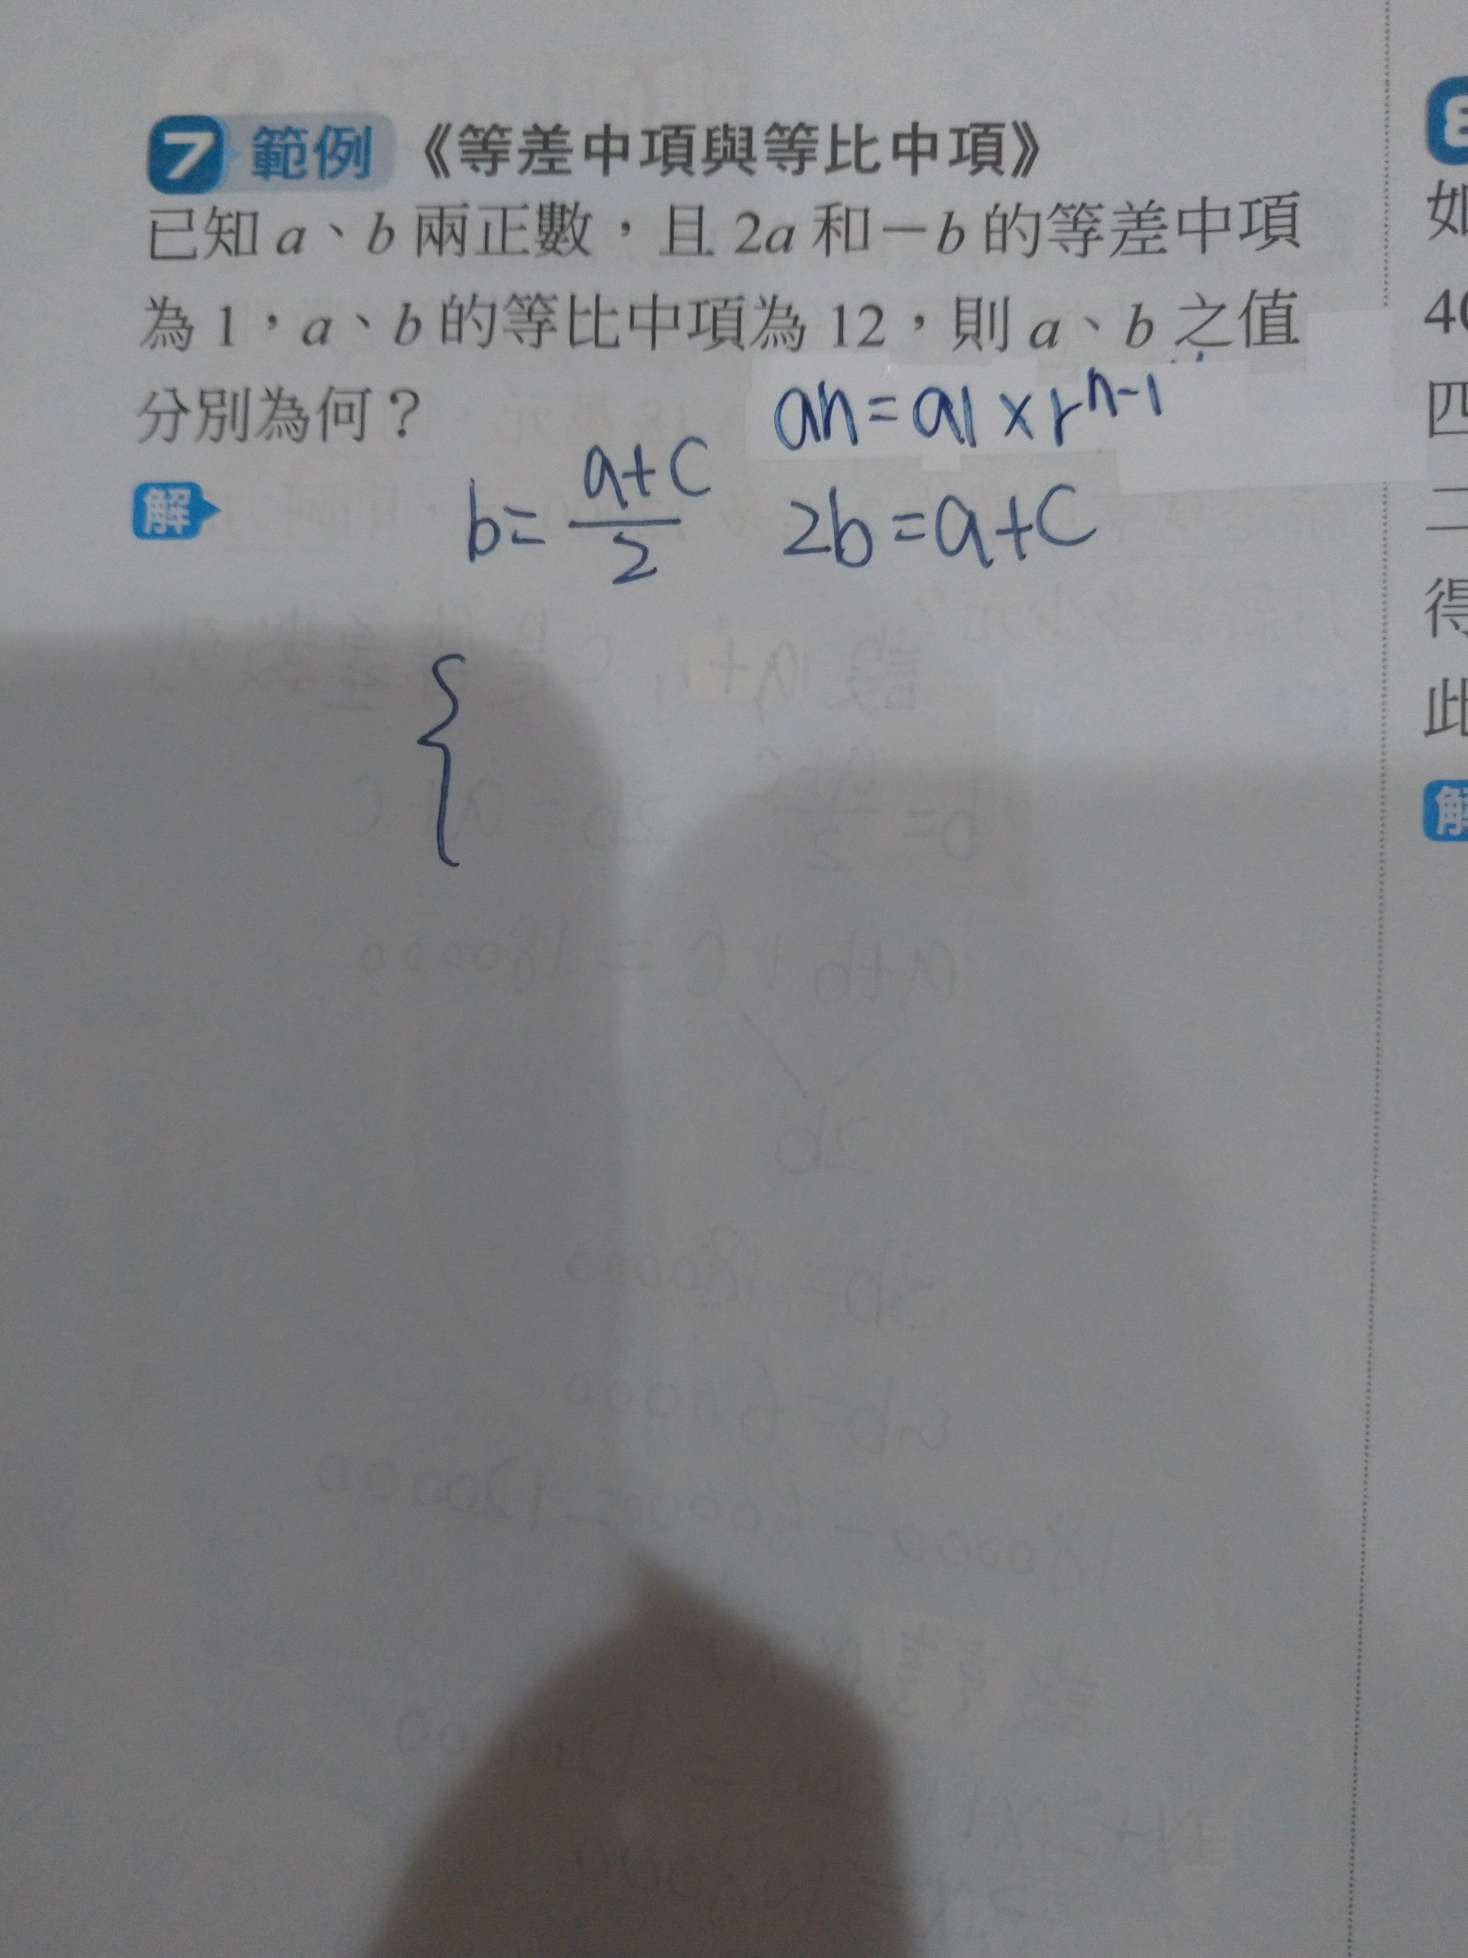 7 範例 《等差中項與等比中項》
已知 a、b 兩正數，且 2a 和－b 的等差中項
為 1，a、b 的等比中項為 12，則 a、b 之值
分別為何？
an=a1×r^n-1
解
b=\frac{a+c}{2} 2b=a+c
{
如
40
四
二
得
此
解